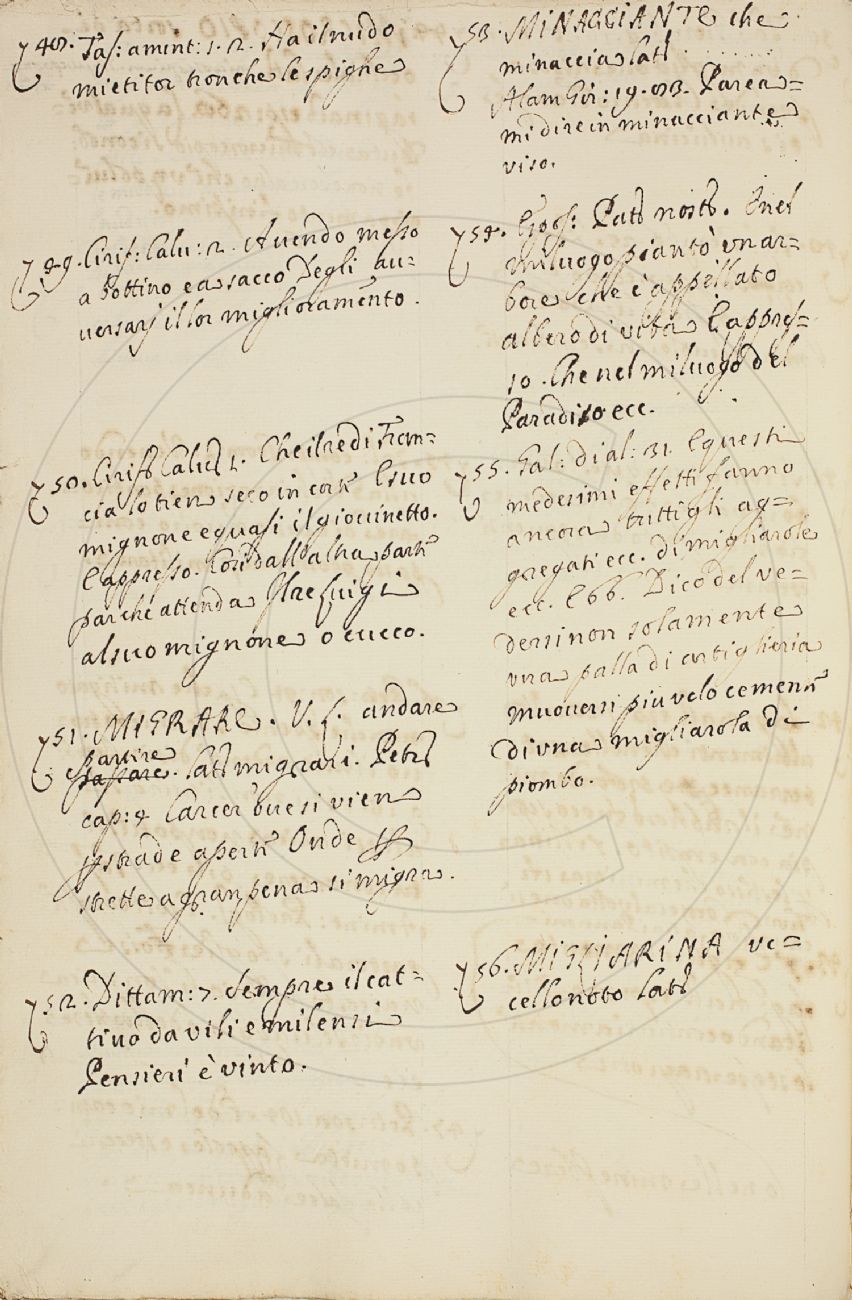 48. Tas: amint: 1. 2. Ha il nudo
mietitor tronche le spighe
49. Cirif: Calu: 2. Auendo messo
a bottino e a sacco Degli au=
uersarj il lor miglioramento.
50. Cirif Calu 1. Che il re di Fran=
cia lo tien seco in corte E suo
mignone e quasi il giouinetto.
E appresso. Cosi dall'altra parte
par che attenda Il re Luigi
al suo mignone o cucco.
51. MIGRARE. V. L. andare
partire
passare. lat migrari. Petr
cap: 4 Carcer oue si vien
strade aperte Onde
strette a gran pena si migra.
52. Dittam: 7. Sempre il cat=
tiuo da vili e milensi
Pensieri è vinto.
53. MINACCIANTE che
minaccia lat
Alam Gir: 19. 83. Parea=
mi dire in minacciante
viso.
54. Espos: Pat nost. Inel
miluogo piantò vn ar=
bore che è appellato
albero di vita E appres=
so. Che nel miluogo del
Paradiso ecc.
55. Gal: dial: 31 E questi
medesimi effetti fanno
ancora tutti gli ag=
gregati ecc. di migliarole
ecc. E 66. Dico del ve=
dersi non solamente
vna palla di artiglieria
muouersi piu velocemente
di vna migliarola di
piombo.
56. MIGLIARINA vc=
cello noto lat